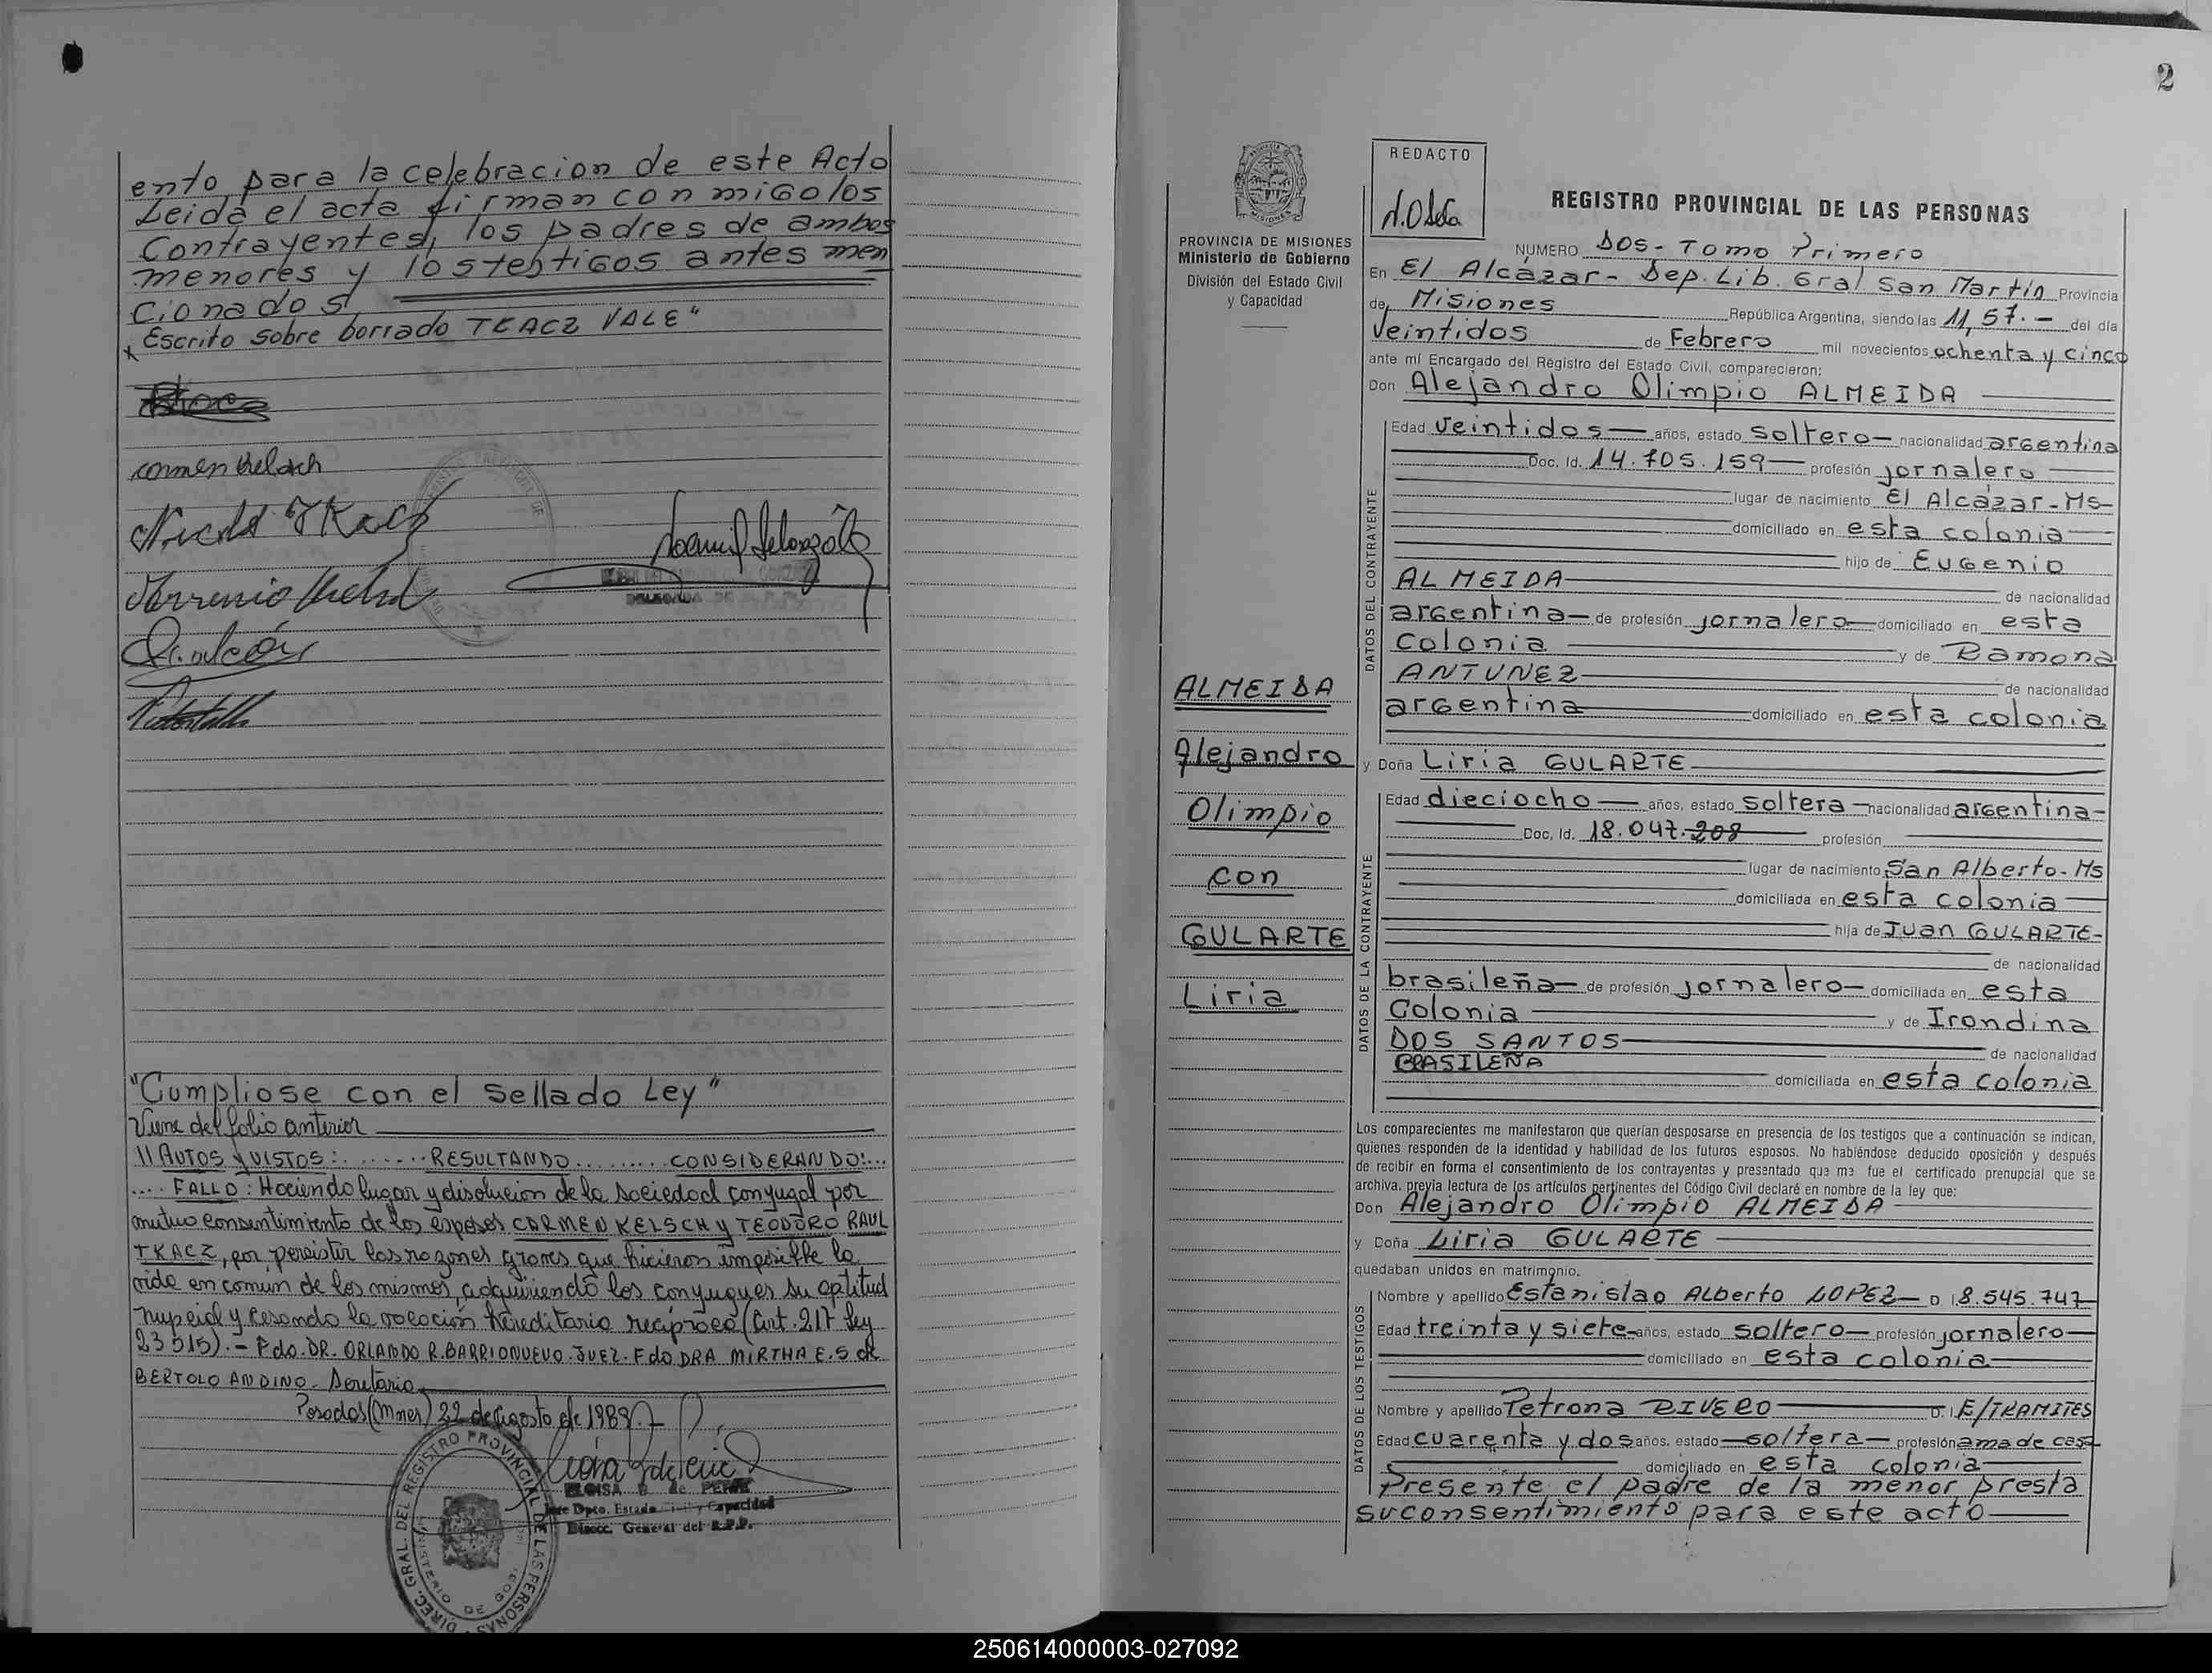 ento para la celebracion de este Acto
Leida el acta firman con miGo los
Contrayentes, los padres de ambos
menores y los testiGos antes men
Cionados
Escrito sobre borrado TKACZ VALE"
"Cumpliose con el Sellado Ley"
Viene del folio anterior
"AUTOS Y VISTOS: ....... RESULTANDO ......... CONSIDERANDO:...
.... FALLO: Haciendo lugar y disolucion de la sociedad conyugal por
mutuo consentimiento de los esposos CARMEN KELSCH y TEODORO RAUL
TKACZ, por persistir las razones graves que hicieron imposible la
vida en comun de los mismos, adquiriendo los conyugues su aptitud
nupcial y cesando la vocación hereditaria reciproca (Art. 217 Ley
23515).- Fdo. DR. ORLANDO R. BARRIONUEVO. JUEZ. Fdo DRA MIRTHA E. S de
BERTOLO ANDINO. Secretaria
Posadas (Mnes) 22 de Agosto de 1989
Jefe Dpto. Estado Civil y Capacidad
Direcc. General del R.P.P.
DIREC. GRAL. DEL REGISTRO PROVINCIAL DE LAS PERSONAS
2
PROVINCIA DE MISIONES
Ministerio de Gobierno
División del Estado Civil
y Capacidad
REDACTO
REGISTRO PROVINCIAL DE LAS PERSONAS
NUMERO DOS - TOMO Primero
En El Alcázar - Dep. Lib. Gral San Martín Provincia
de Misiones República Argentina, siendo las 11,57.- del día
Veintidos de Febrero mil novecientos ochenta y cinco
ante mí Encargado del Registro del Estado Civil, comparecieron:
Don Alejandro Olimpio ALMEIDA
Edad Veintidos años, estado Soltero nacionalidad arGentina
Doc. Id. 14.705.159 profesión jornalero
lugar de nacimiento El Alcázar - Ms
domiciliado en esta colonia
hijo de EuGenio
ALMEIDA de nacionalidad
arGentina de profesión jornalero domiciliado en esta
Colonia y de Ramona
ANTUNEZ de nacionalidad
arGentina domiciliado en esta colonia
y Doña Liria GULARTE
Edad dieciocho años, estado soltera nacionalidad arGentina
Doc. Id. 18.047.208 profesión
lugar de nacimiento San Alberto - Ms
domiciliada en esta colonia
hija de Juan GULARTE
de nacionalidad
brasileña de profesión jornalero domiciliada en esta
Colonia y de Irondina
DOS SANTOS de nacionalidad
BRASILEÑA domiciliada en esta colonia
ALMEIDA
Alejandro
Olimpio
con
GULARTE
Liria
DATOS DEL CONTRAYENTE
DATOS DE LA CONTRAYENTE
Los comparecientes me manifestaron que querían desposarse en presencia de los testigos que a continuación se indican,
quienes responden de la identidad y habilidad de los futuros esposos. No habiéndose deducido oposición y después
de recibir en forma el consentimiento de los contrayentes y presentado que me fue el certificado prenupcial que se
archiva, previa lectura de los artículos pertinentes del Código Civil declaré en nombre de la ley que:
Don Alejandro Olimpio ALMEIDA
y Doña Liria GULARTE
quedaban unidos en matrimonio.
DATOS DE LOS TESTIGOS
Nombre y apellido Estanislao Alberto LOPEZ D I 8.545.747
Edad treinta y siete años, estado soltero profesión jornalero
domiciliado en esta colonia
Nombre y apellido Petrona RIVERO D. I. E/TRAMITES
Edad cuarenta y dos años, estado soltera profesión ama de casa
domiciliado en esta colonia
Presente el padre de la menor presta
su consentimiento para este acto
250614000003-027092